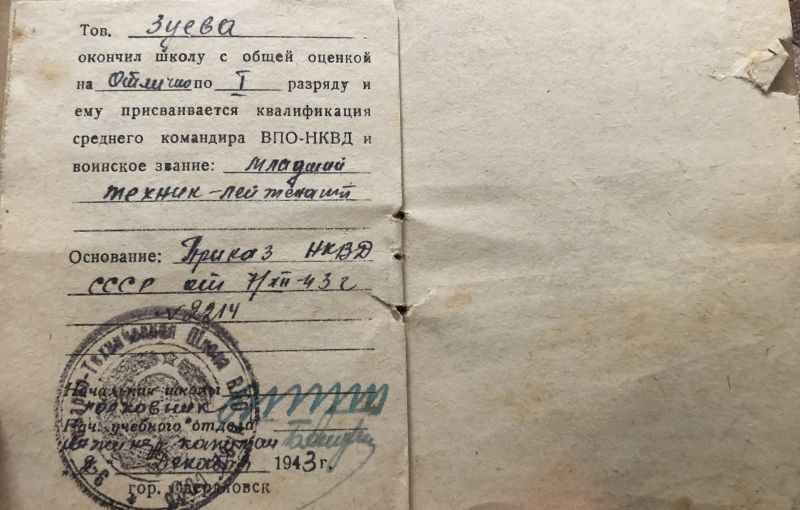 Тов. Зуева
окончил школу с общей оценкой
на Отлично по I разряду и
ему присваивается квалификация
среднего командира ВПО-НКВД и
воинское звание: Младший
техник-лейтенант
Основание: Приказ НКВД
СССР от 7/XII-43 г
№ 2214
Начальник школы
Нач. учебного отдела
инженер капитан
декабря 1943 г.
гор. Свердловск
Техническая Школа